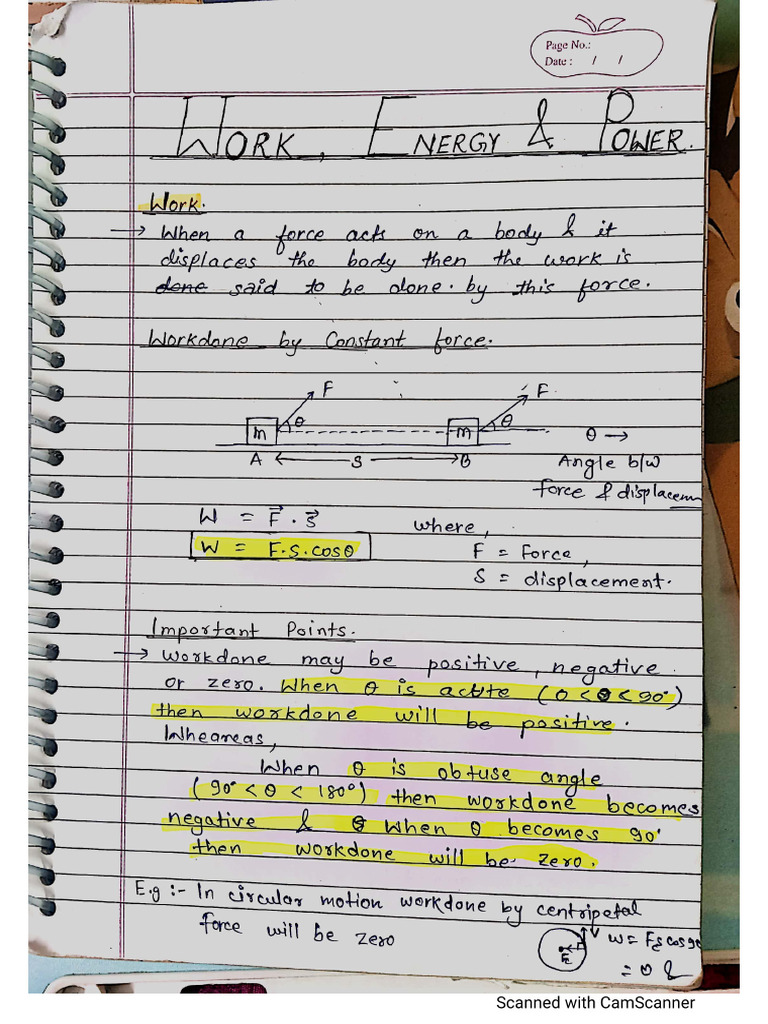 Page No.:
Date : / /
WORK, ENERGY & POWER.
Work.
→ When a force acts on a body & it
displaces the body then the work is
done said to be done. by this force.
Workdone by Constant force.
F F
θ θ
m m θ →
A ← S → B Angle b/w
force & displacem
W = F⃗ . S⃗ where,
W = F.S.cosθ F = Force,
S = displacement.
Important Points.
→ Workdone may be positive, negative
or zero. When θ is acute (0 < θ < 90°)
then workdone will be positive.
Wheareas,
When θ is obtuse angle
(90° < θ < 180°) then workdone becomes
negative & When θ becomes 90°
then workdone will be zero.
E.g :- In circular motion workdone by centripetal
force will be zero
Fc V W = Fc cos 90
= 0
Scanned with CamScanner